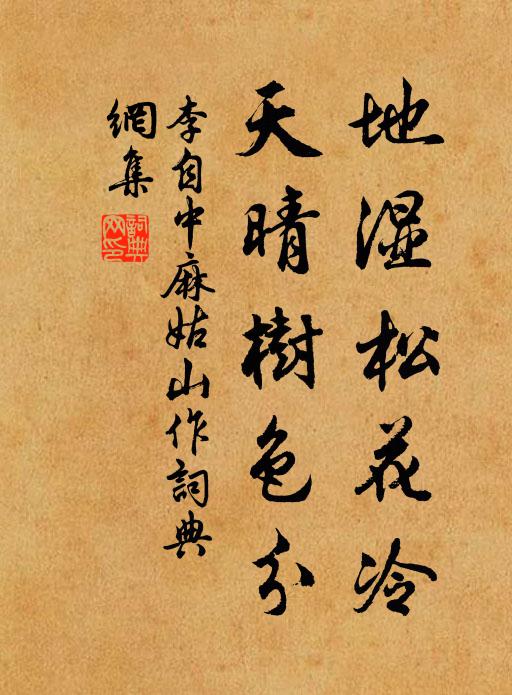 地湿松花冷
天晴樹色分
李自中麻姑山作詞典
網集
詞典網印